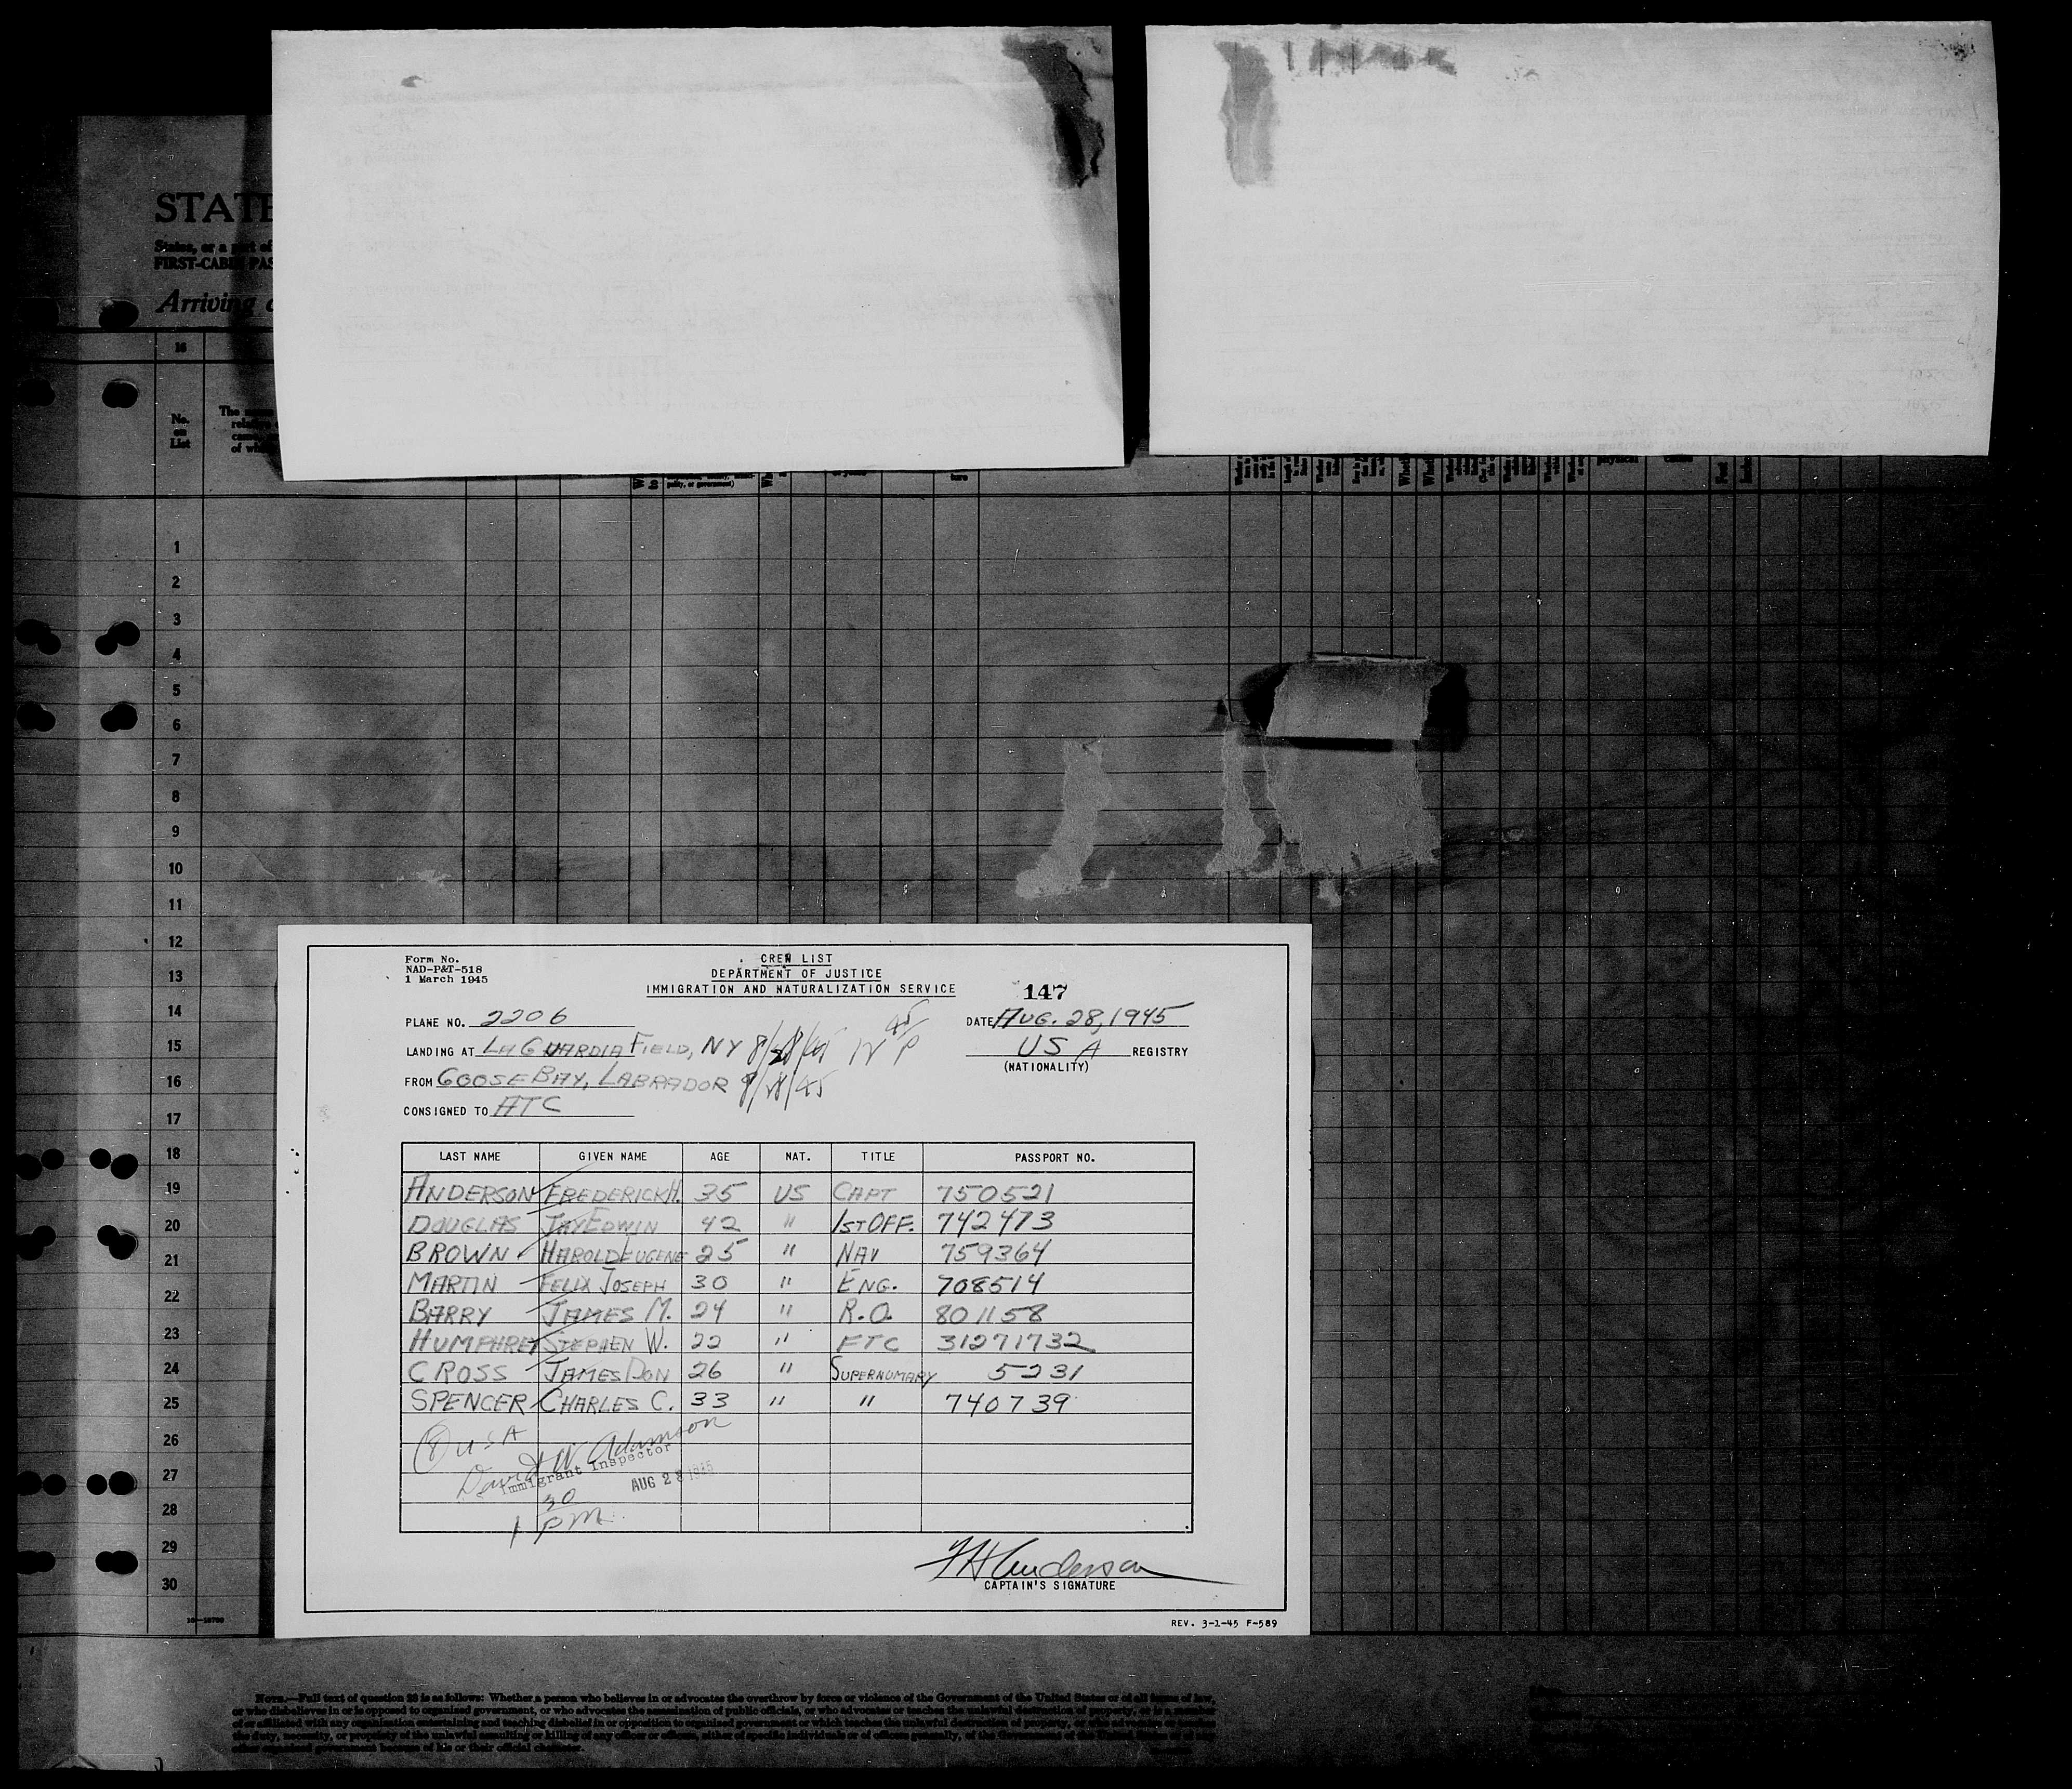 STATE
States, or a part of
FIRST-CABIN PAS
Arriving
16
No. on List
The
of
physical
ture
1
2
3
4
5
6
7
8
9
10
11
12
13
14
15
16
17
18
19
20
21
22
23
24
25
26
27
28
29
30
Form No.
NAD-P&T-518
1 March 1945
CREW LIST
DEPARTMENT OF JUSTICE
IMMIGRATION AND NATURALIZATION SERVICE
147
PLANE NO. 2206
DATE AUG. 28, 1945
LANDING AT LA GUARDIA FIELD, NY 8/28/45 12 45 P
USA REGISTRY
(NATIONALITY)
FROM GOOSE BAY, LABRADOR 8/28/45
CONSIGNED TO ATC
LAST NAME GIVEN NAME AGE NAT. TITLE PASSPORT NO.
ANDERSON FREDERICK H. 35 US CAPT 750521
DOUGLAS JAY EDWIN 42 " 1ST OFF. 742473
BROWN HAROLD EUGENE 25 " NAV 759364
MARTIN FELIX JOSEPH 30 " ENG. 708514
BARRY JAMES M. 24 " R.O. 801158
HUMPHREY STEPHEN W. 22 " FTC 31271732
CROSS JAMES DON 26 " SUPERNUMARY 5231
SPENCER CHARLES C. 33 " " 740739
(8) USA
David W. Adamson
Immigrant Inspector
AUG 28 1945
1 30 PM
F H Anderson
CAPTAIN'S SIGNATURE
REV. 3-1-45 F-589
NOTE.—Full text of question 23 is as follows: Whether a person who believes in or advocates the overthrow by force or violence of the Government of the United States or of all forms of law,
or who disbelieves in or is opposed to organized government, or who advocates the assassination of public officials, or who advocates or teaches the unlawful destruction of property, or is a member
of or affiliated with any organization entertaining and teaching disbelief in or opposition to organized government or which teaches the unlawful destruction of property, or who advocates or teaches
the duty, necessity, or propriety of the unlawful assaulting or killing of any officer or officers, either of specific individuals or of officers generally, of the Government of the United States or of any
other organized government because of his or their official character.